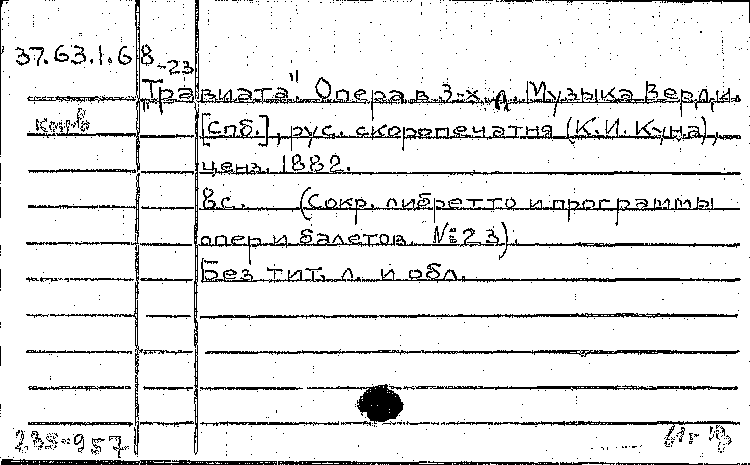 37.63.1.68-23
"Травиата". Опера в 3-х д. Музыка Верди.
[Спб.], рус. скоропечатня (К.И. Куна),
ценз. 1882.
8с. (Сокр. либретто и программы
опер и балетов. №23).
Без тит. л. и обл.
235-957